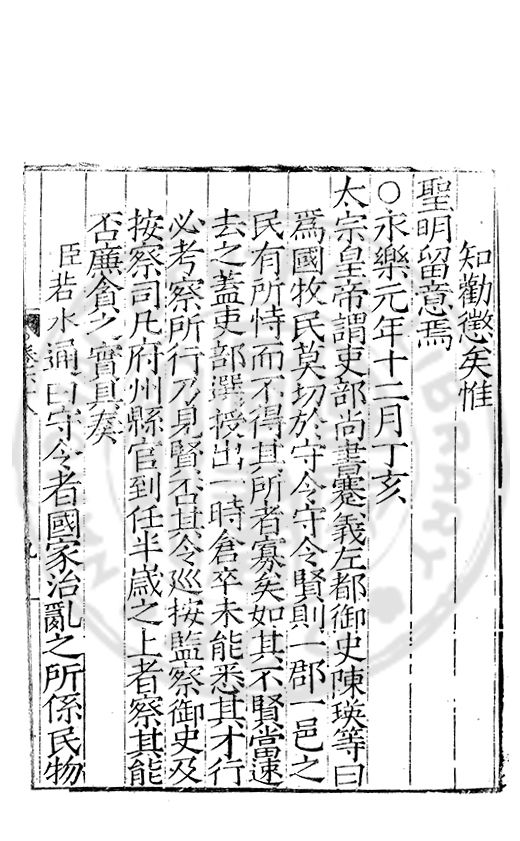 知勸懲矣惟
聖明留意焉
○永樂元年十二月丁亥
太宗皇帝謂吏部尚書蹇義左都御史陳瑛等曰
爲國牧民莫切於守令守令賢則一郡一邑之
民有所恃而不得其所者寡矣如其不賢當速
去之蓋吏部選授出一時倉卒未能悉其才行
必考察所行乃見賢否其令廵按監察御史及
按察司凡府州縣官到任半歳之上者察其能
否廉貪之實具奏
臣若水通曰守令者國家治亂之所係民物